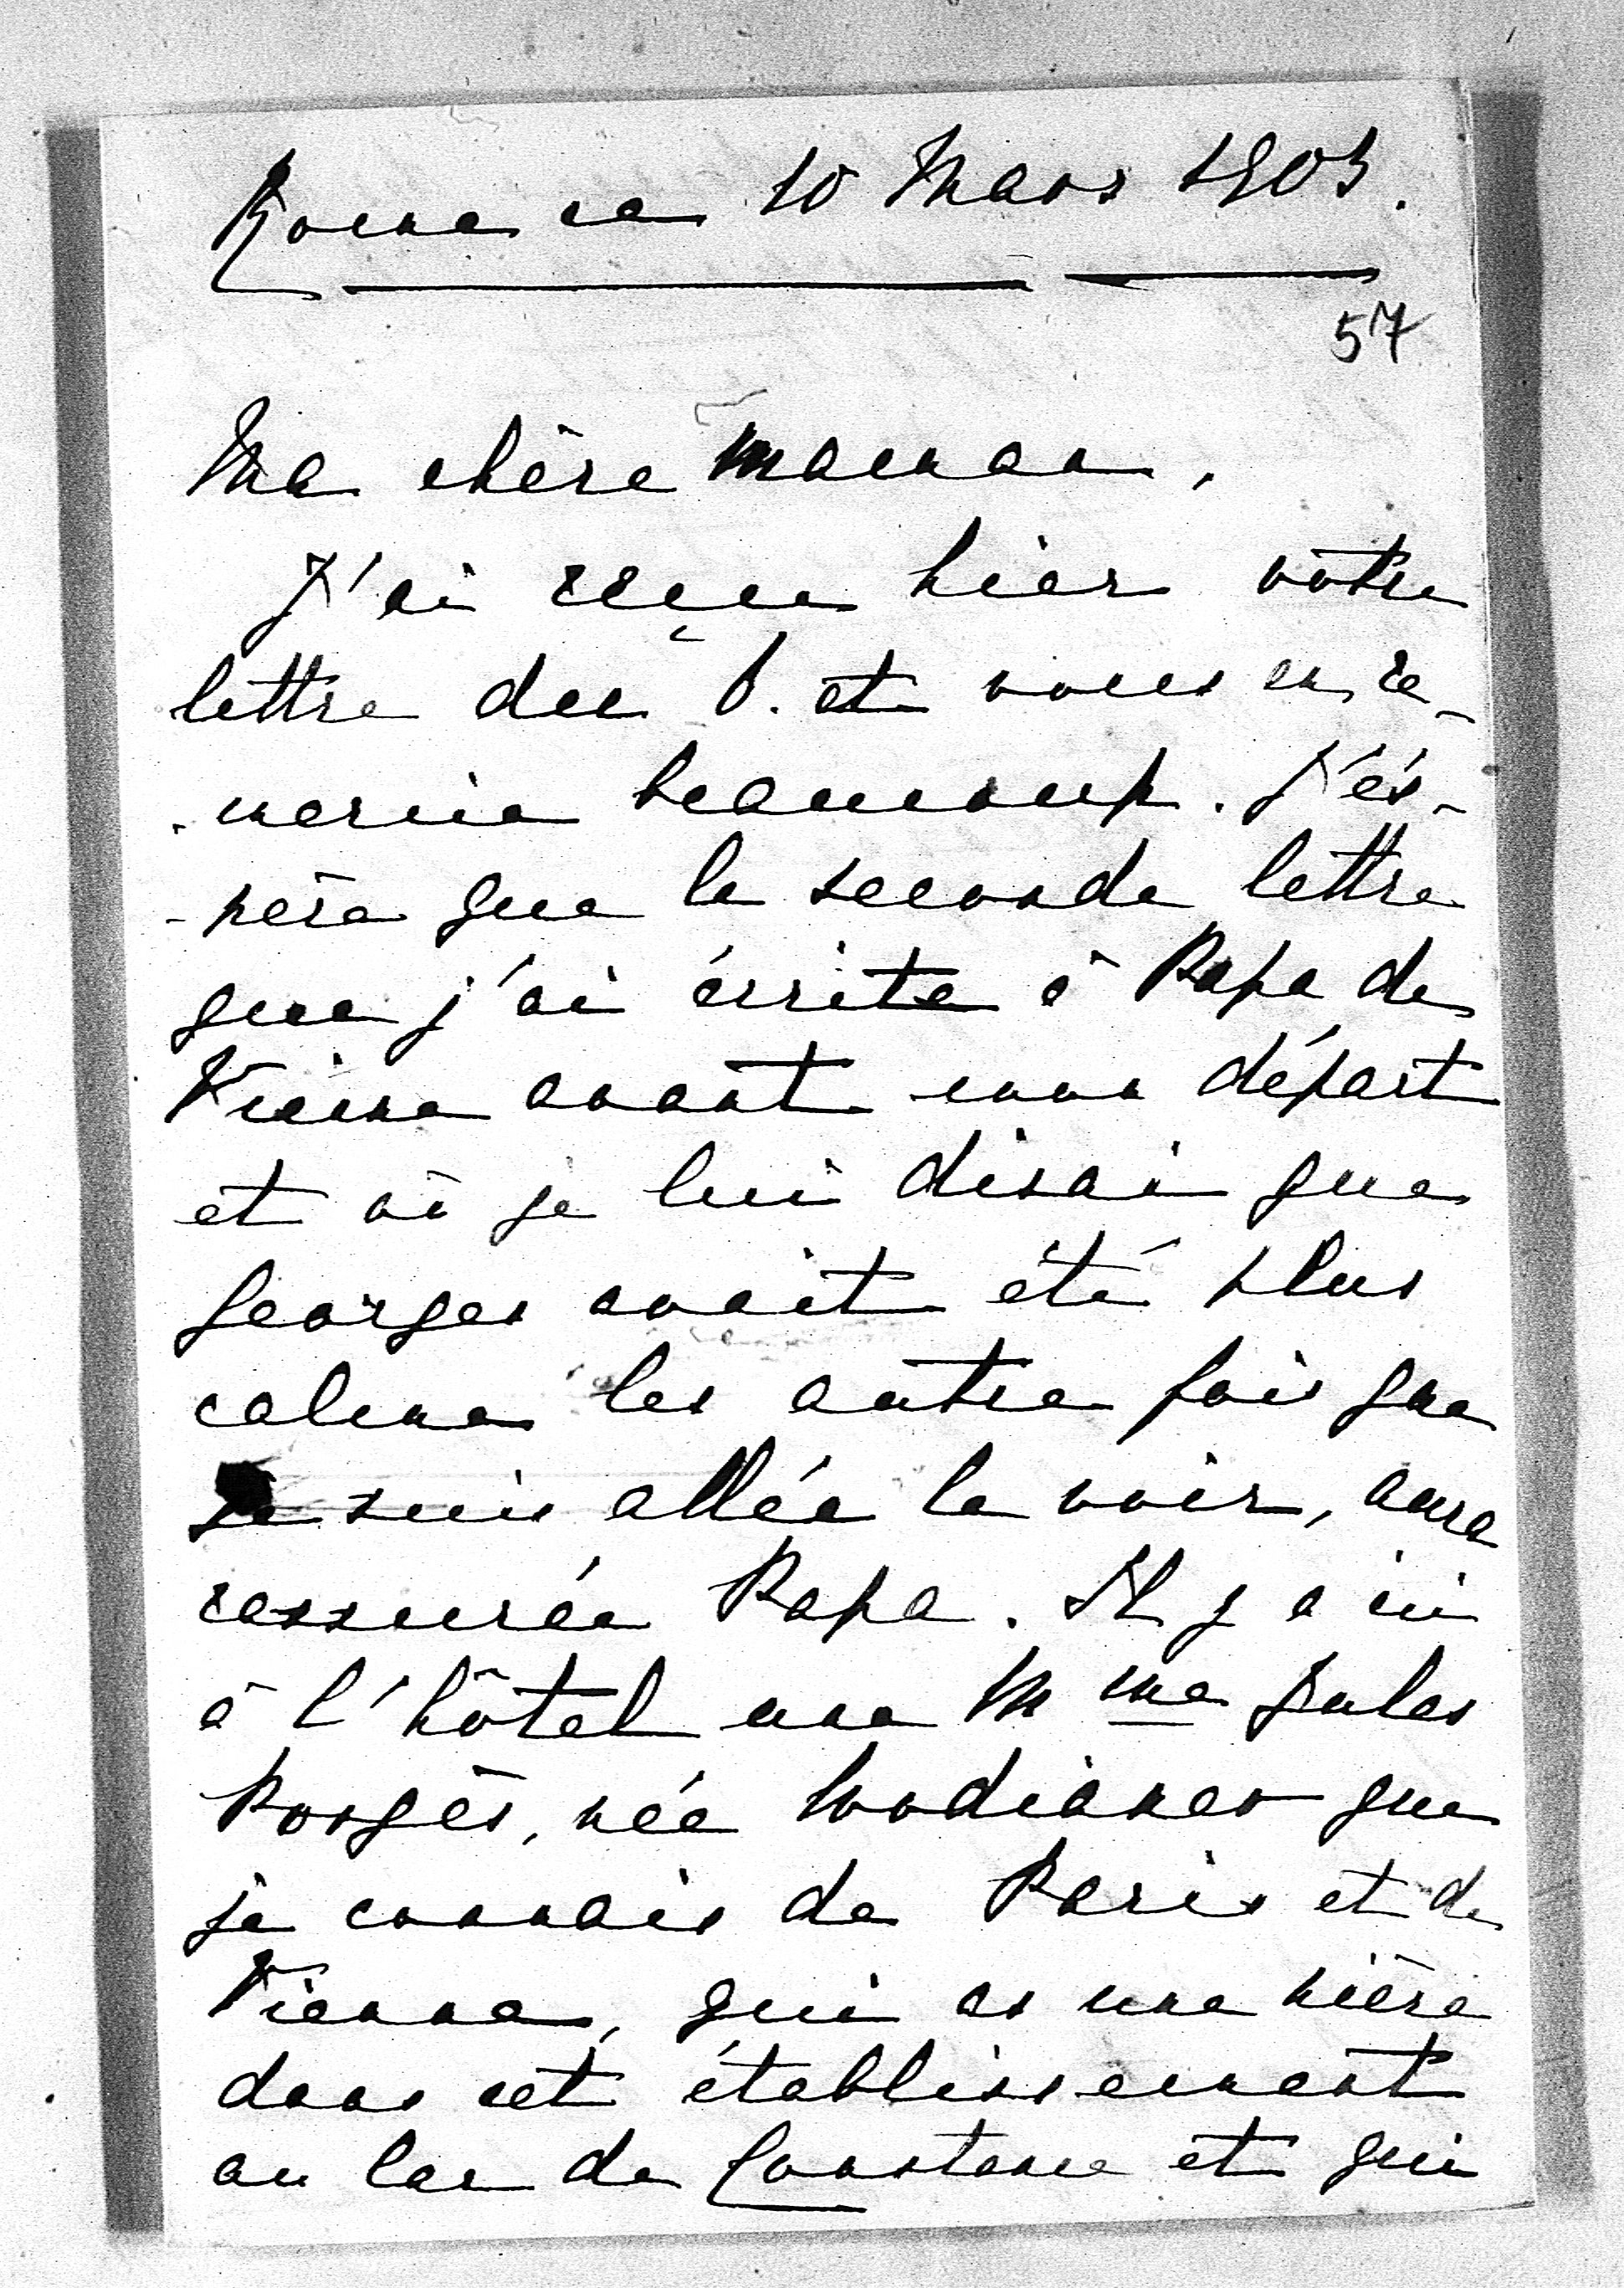 Rome ce 10 Mars 1903.
57
Ma chère maman,
J'ai reçu hier votre
lettre du 6. et vous en re-
-mercie beaucoup. J'és-
-père que la seconde lettre
que j'ai écrite à Papa de
Vienne avant mon départ
et où je lui disai que
Georges avait été plus
calme les autre fois que
je suis allée le voir, aura
rassurée Papa. Il y a ici
à l'hôtel une Mme Jules
Porgès, née Wodianer que
je connais de Paris et de
Vienne, qui as une nièce
dans cet établissement
au lac de Constance et qui